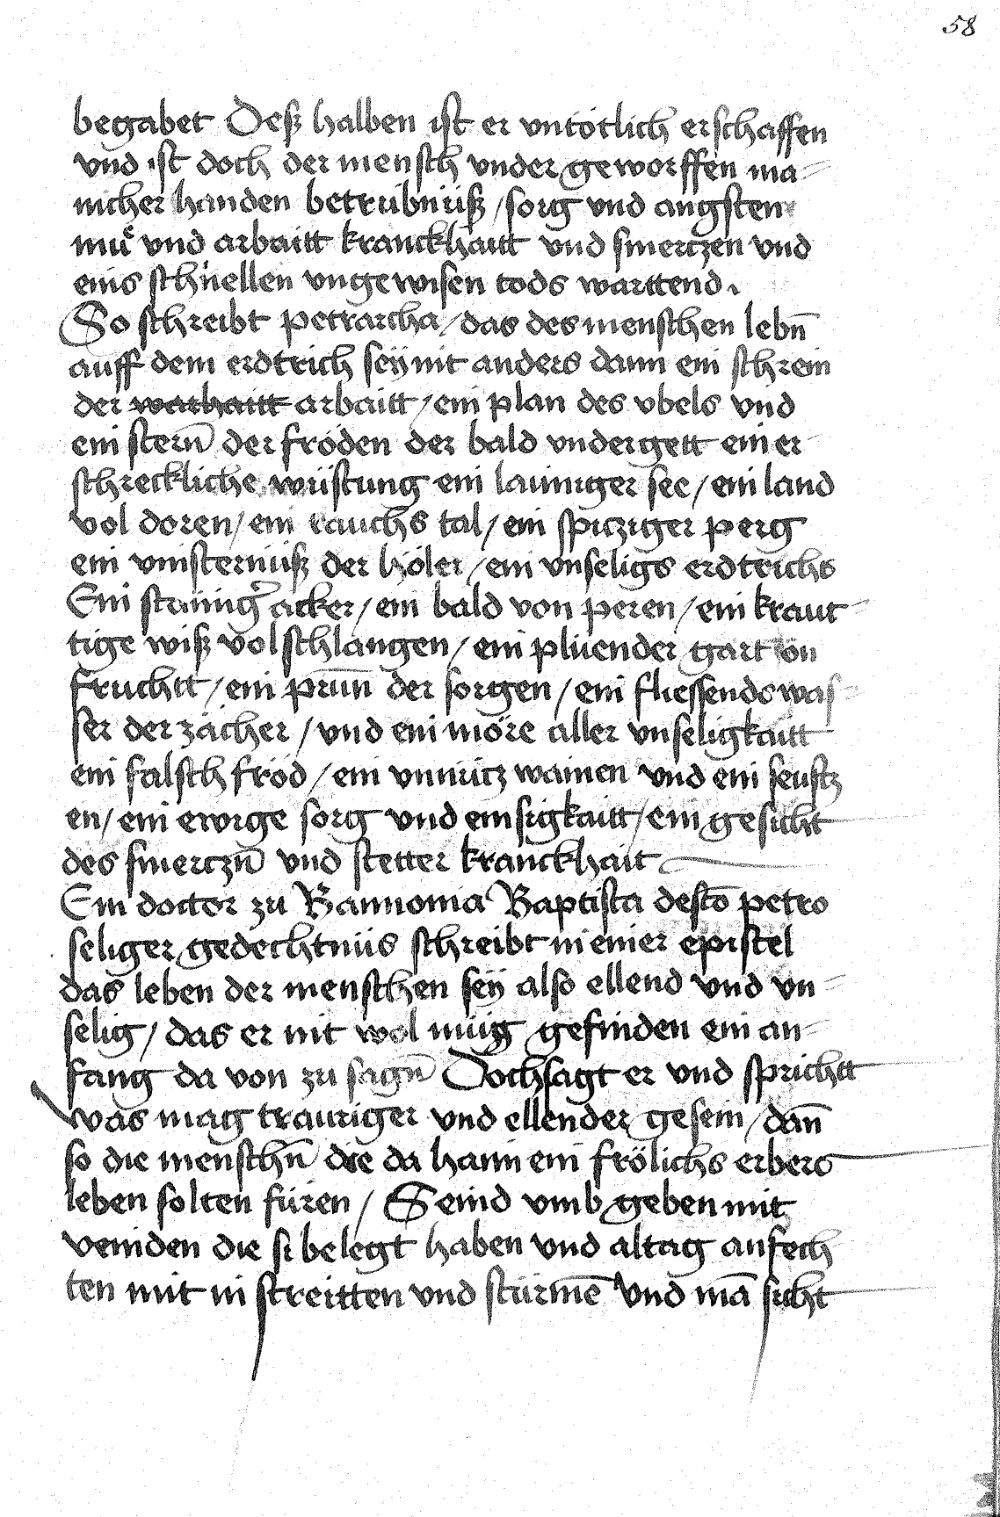 58
begabet Desß halben ist er vntötlich erschaffen
vnd ist doch der mensch vnder geworffen ma=
nicher handen betrübnüsß / sorg vnd angsten
müe vnd arbaitt kranckhaitt vnd smertzen vnd
eins schnellen vngewisen tods warttend.
So schreibt petrarcha / das des menschen lebn̄
auff dem erdtrich seÿ nit anders dann ein schrein
der warhaitt arbaitt / ein plan des vbels vnd
ein stern̄ der fröden der bald vndergett ein er
schreckliche wüstung ein launiger see / ein land
vol doren / ein rauchs tal / ein spitziger perg
ein vinsternüsß der höler / ein vnseligs erdtrichs
Ein stainig̉ acker / ein bald von peren / ein kraut=
tige wisß vol schlangen / ein plüender gart ön
fruchtt / ein prun̄ der sorgen / ein fliessends was=
ser der zächer / vnd ein möre aller vnseligkaitt
ein falsch fröd / ein vnnütz wainen vnd ein seuftz
en / ein ewige sorg vnd emsigkaitt / ein gesicht
des smertzn̄ vnd stetter kranckhait
Ein docter zu Bannonia Baptista desto̅ petro
seliger gedechtnüs schreibt in einer epistel
das leben der menschen seÿ also ellend vnd vn=
selig / das er nit wol müg gefinden ein an=
fang da von zu sagn̄ Doch sagt er vnd sprichtt
was mag trauriger vnd ellender gesein / dan̄
so die menschn̄ die da hann ein frölichs erbers
leben solten füren / Seind vmb geben mit
veinden die si belegt haben vnd altag anfech
ten mit in streitten vnd stürme̅ vnd ma̅ sicht